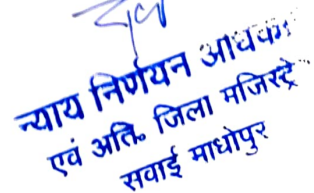 न्याय निर्णयन आधिका
एवं अति० जिला मजिस्ट्रे
सवाई माधोपुर